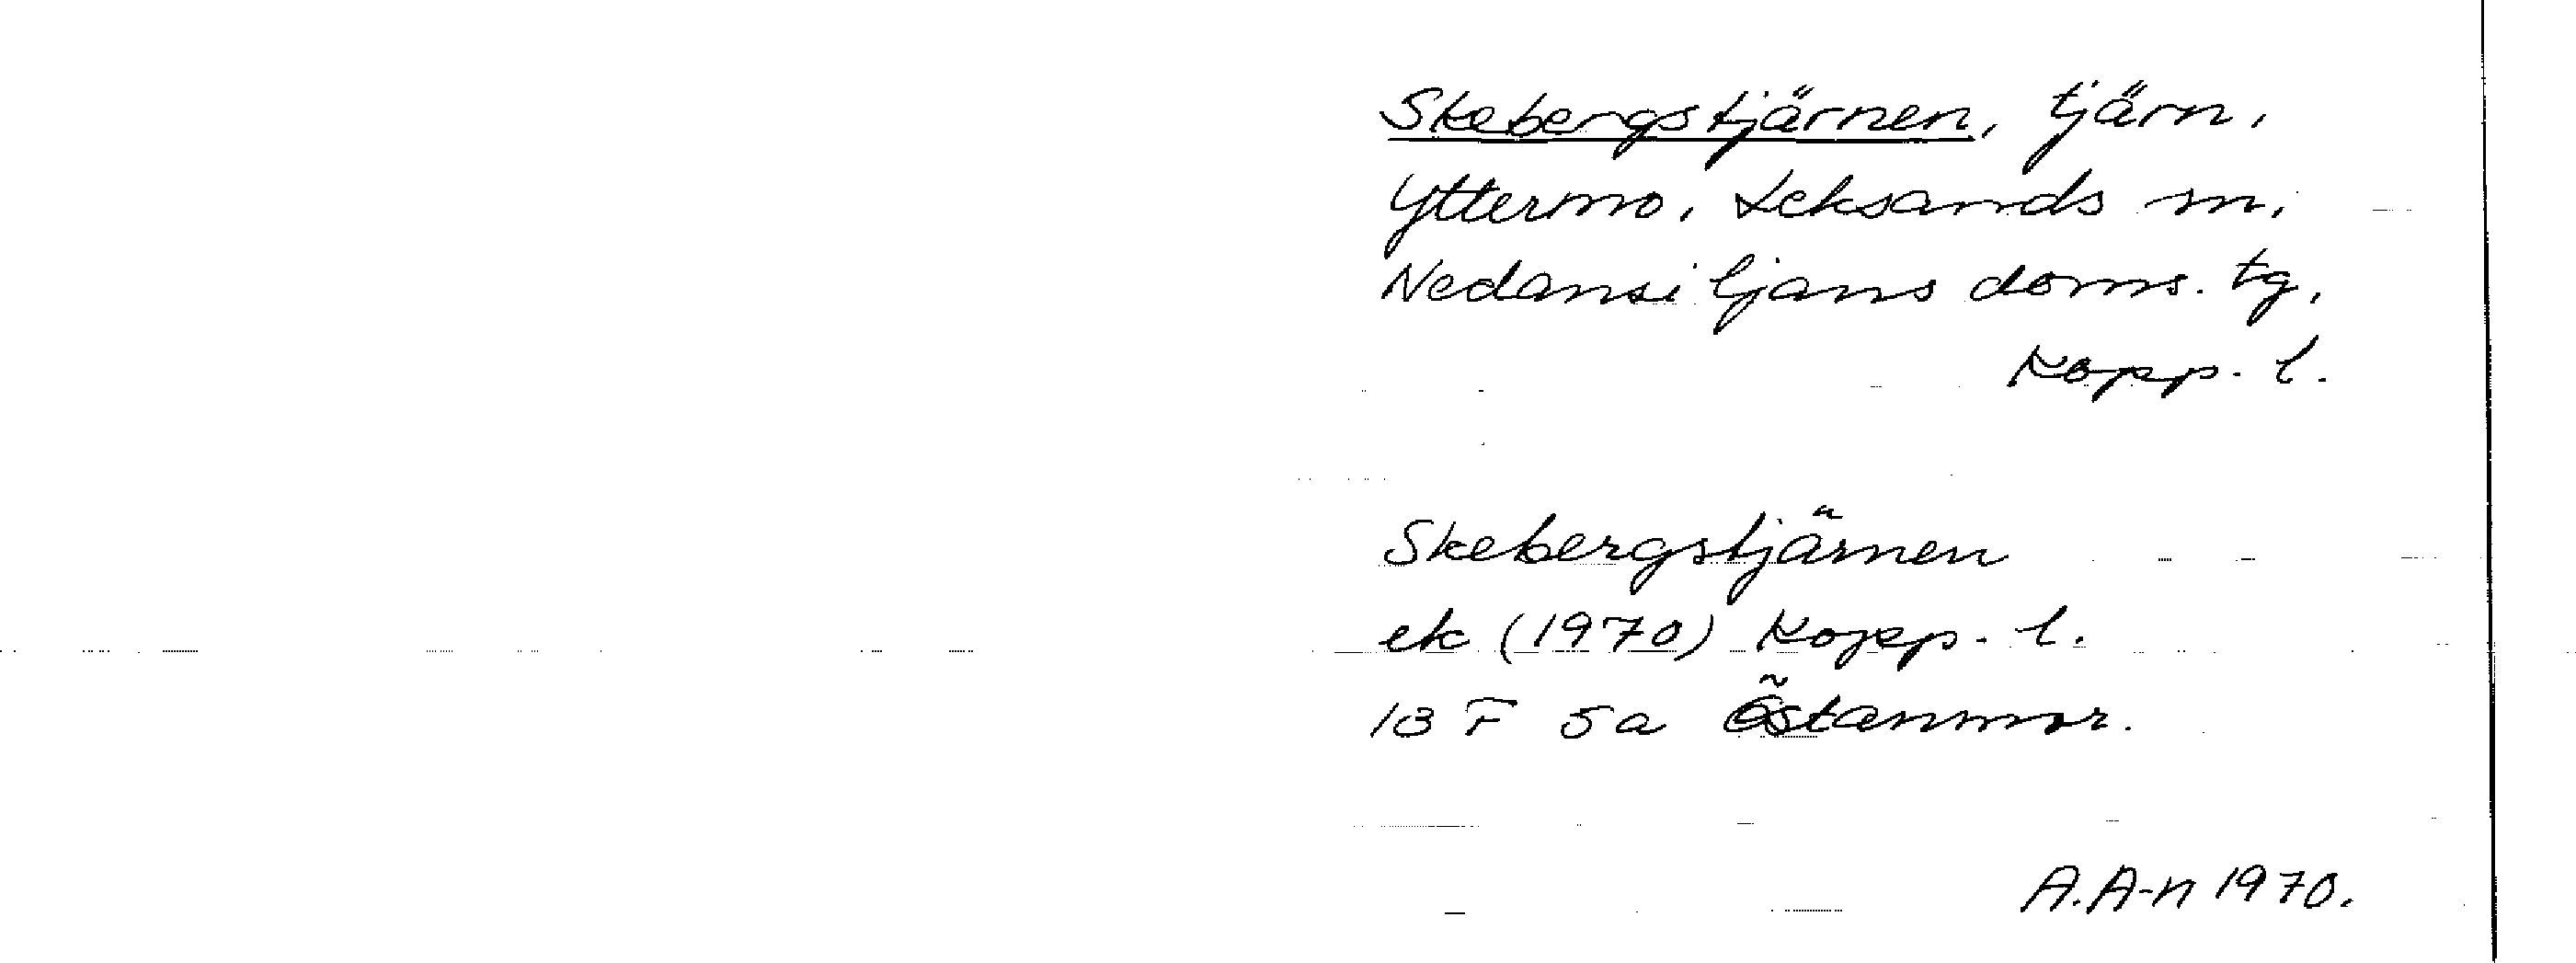 Skebergstjärnen, tjärn,
Yttermo, Leksands sn,
Nedansiljans doms. tg,
Kopp. l.
Skebergstjärnen
ek (1970) Kopp. l.
13 F 5a Östanmor.
A.A-n 1970.